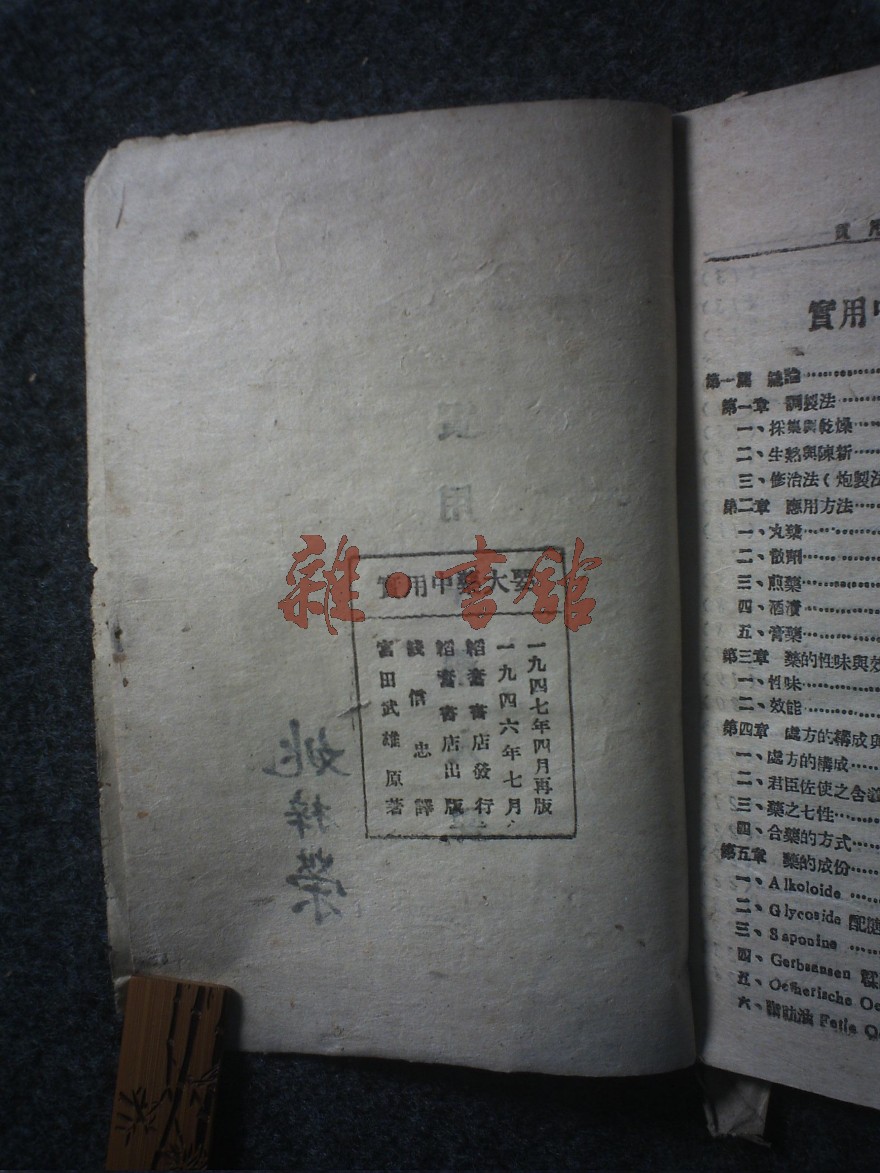 實用中藥大要
一九四七年四月再版
一九四六年七月
韜奮書店發行
韜奮書店出版
錢信忠譯
富田武雄原著
姚梓榮
雜·書館
實用
實用中
第一篇 總論
第一章 調製法
一、採集與乾燥
二、生熟與陳新
三、修治法(炮製法
第二章 應用方法
一、丸藥
二、散劑
三、煎藥
四、酒漬
五、膏藥
第三章 藥的性味與效
一、性味
二、效能
第四章 處方的構成與
一、處方的構成
二、君臣佐使之含義
三、藥之七性
四、合藥的方式
第五章 藥的成份
一、Alkoloide
二、Glycoside 配醣
三、Saponine
四、Gerbsansen 鞣
五、Oetherische Oe
六、脂肪油 Fette Oe